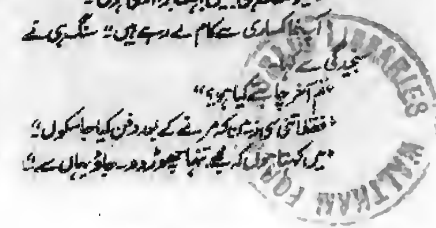 آپ خاکساری سے کام لے رہے ہیں؛ سنگ ہی نے
سنجیدگی سے کہا۔
"تم آخر چاہتے کیا ہو؟"
"فقط اتنی سی زمین کہ مرنے کے بعد دفن کیا جا سکوں"
"میں کہتا ہوں کہ مجھے تنہا چھوڑ دو۔ جاؤ یہاں سے"
LIBRARIES
WALTHAM FOR